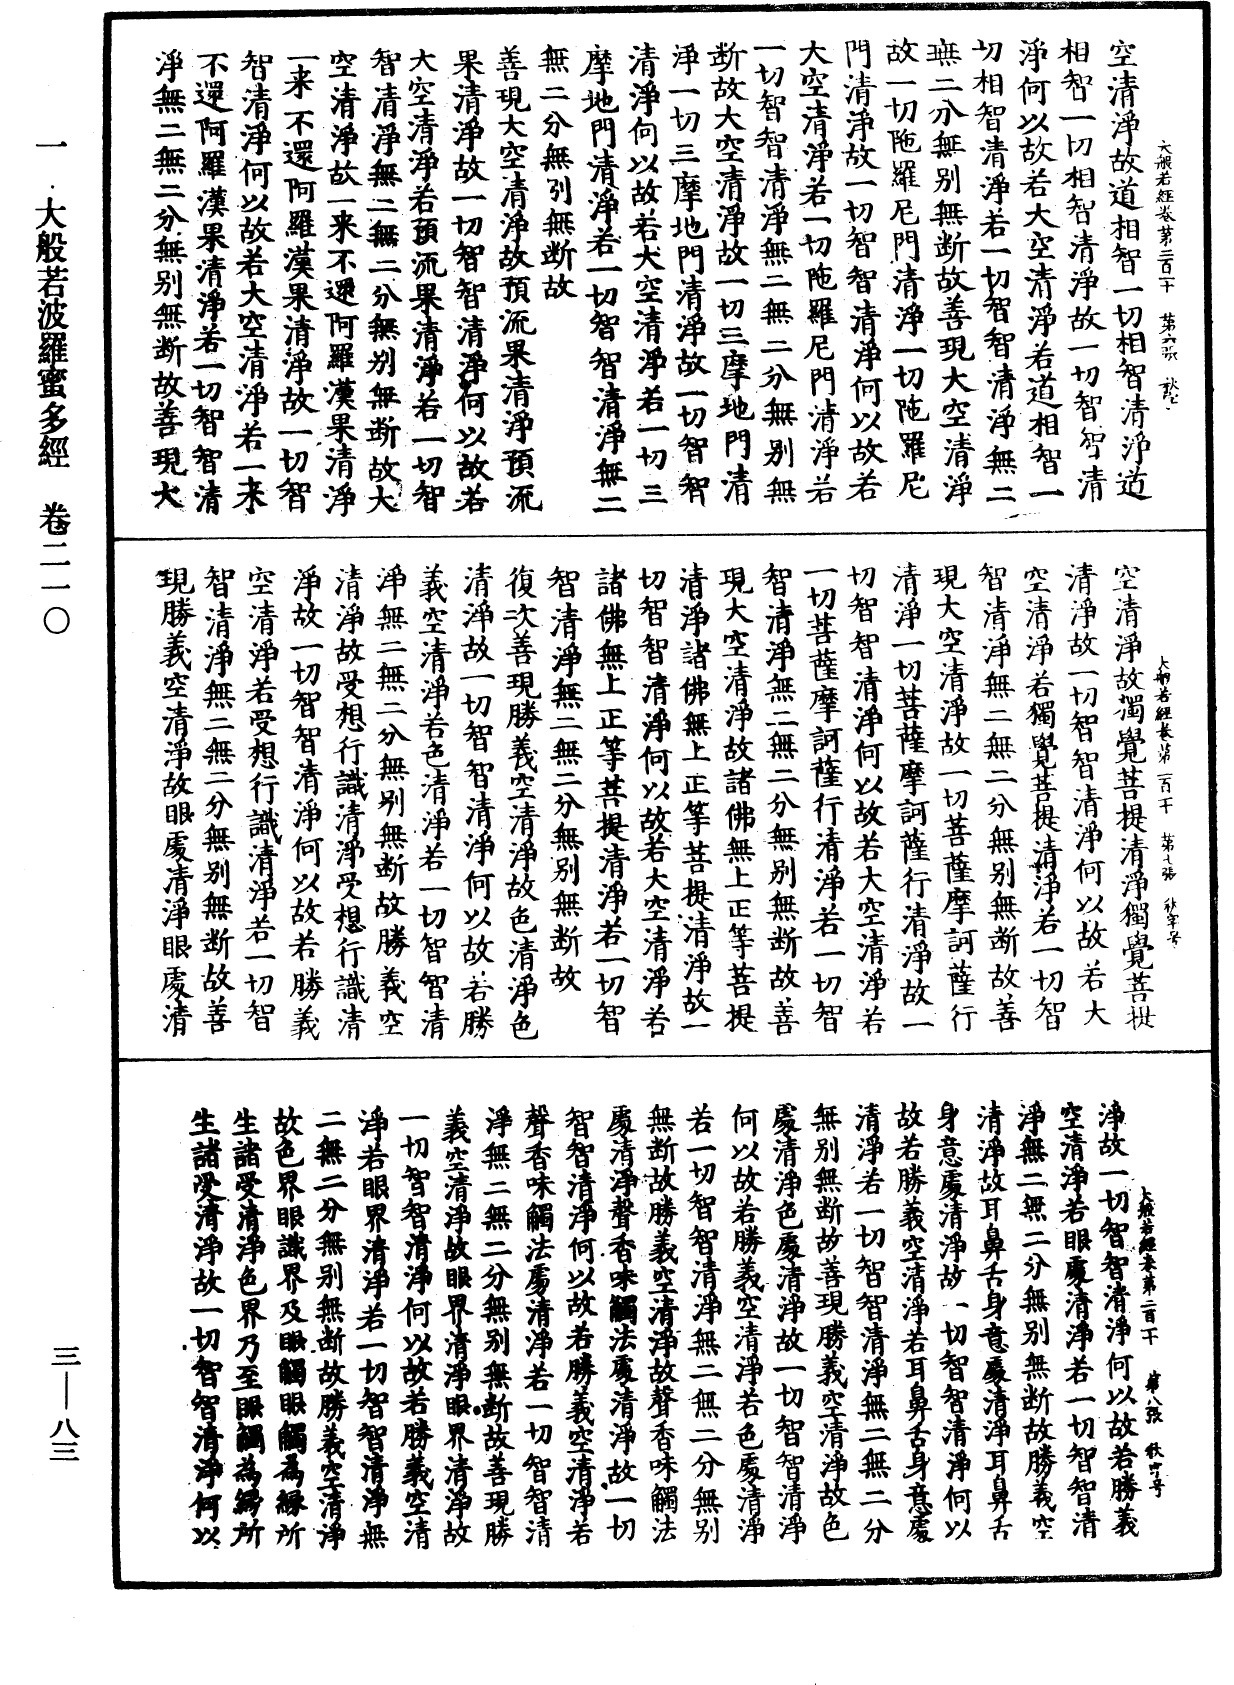 大般若經卷第二百一十 第六張
空清淨故道相智一切相智清淨道
相智一切相智清淨故一切智智清
淨何以故若大空清淨若道相智一
切相智清淨若一切智智清淨無二
無二分無别無断故善現大空清淨
故一切陁羅尼門清淨一切陁羅尼
門清淨故一切智智清淨何以故若
大空清淨若一切陁羅尼門清淨若
一切智智清淨無二無二分無别無
断故大空清淨故一切三摩地門清
淨一切三摩地門清淨故一切智智
清淨何以故若大空清淨若一切三
摩地門清淨若一切智智清淨無二
無二分無别無断故
善現大空清淨故預流果清淨預流
果清淨故一切智智清淨何以故若
大空清淨若預流果清淨若一切智
智清淨無二無二分無别無断故大
空清淨故一来不還阿羅漢果清淨
一来不還阿羅漢果清淨故一切智
智清淨何以故若大空清淨若一来
不還阿羅漢果清淨若一切智智清
淨無二無二分無别無断故善現大
大般若經卷第二百一十 第七張
空清淨故獨覺菩提清淨獨覺菩提
清淨故一切智智清淨何以故若大
空清淨若獨覺菩提清淨若一切智
智清淨無二無二分無别無断故善
現大空清淨故一切菩薩摩訶薩行
清淨一切菩薩摩訶薩行清淨故一
切智智清淨何以故若大空清淨若
一切菩薩摩訶薩行清淨若一切智
智清淨無二無二分無别無断故善
現大空清淨故諸佛無上正等菩提
清淨諸佛無上正等菩提清淨故一
切智智清淨何以故若大空清淨若
諸佛無上正等菩提清淨若一切智
智清淨無二無二分無别無断故
復次善現勝義空清淨故色清淨色
清淨故一切智智清淨何以故若勝
義空清淨若色清淨若一切智智清
淨無二無二分無别無断故勝義空
清淨故受想行識清淨受想行識清
淨故一切智智清淨何以故若勝義
空清淨若受想行識清淨若一切智
智清淨無二無二分無别無断故善
現勝義空清淨故眼處清淨眼處清
大般若經卷第二百一十 第八張
淨故一切智智清淨何以故若勝義
空清淨若眼處清淨若一切智智清
淨無二無二分無别無断故勝義空
清淨故耳鼻舌身意處清淨耳鼻舌
身意處清淨故一切智智清淨何以
故若勝義空清淨若耳鼻舌身意處
清淨若一切智智清淨無二無二分
無别無断故善現勝義空清淨故色
處清淨色處清淨故一切智智清淨
何以故若勝義空清淨若色處清淨
若一切智智清淨無二無二分無别
無断故勝義空清淨故聲香味觸法
處清淨聲香味觸法處清淨故一切
智智清淨何以故若勝義空清淨若
聲香味觸法處清淨若一切智智清
淨無二無二分無别無断故善現勝
義空清淨故眼界清淨眼界清淨故
一切智智清淨何以故若勝義空清
淨若眼界清淨若一切智智清淨無
二無二分無别無断故勝義空清淨
故色界眼識界及眼觸眼觸為緣所
生諸受清淨色界乃至眼觸為緣所
生諸受清淨故一切智智清淨何以
一·大般若波羅蜜多經 卷二一〇
三—八三